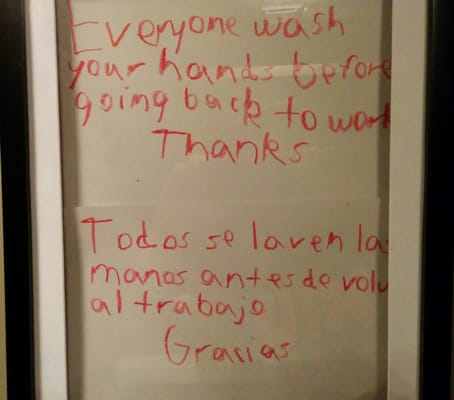 Everyone wash
your hands before
going back to work
Thanks
Todos se laven la
manos antes de volv
al trabajo
Gracias